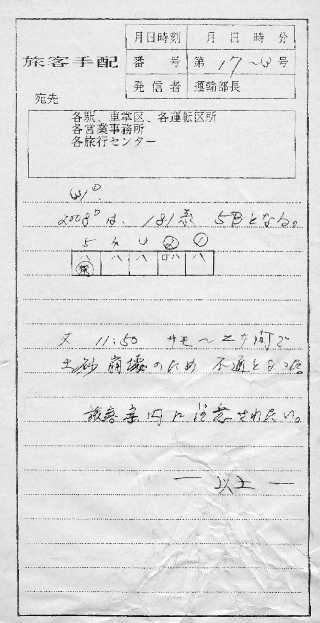 旅客手配
月日時刻 月 日 時 分
番 号 第 17~3 号
発 信 者 運輸部長
宛先
各駅、車掌区、各運転区所
各営業事務所
各旅行センター
2008D は、181系 5Bとなる。
5 4 ② ①
ハ ハ ハ ロハ ハ
又 11:50 間で
土砂崩壊のため 不通となった
旅客案内に注意されたい。
― 以上 ―